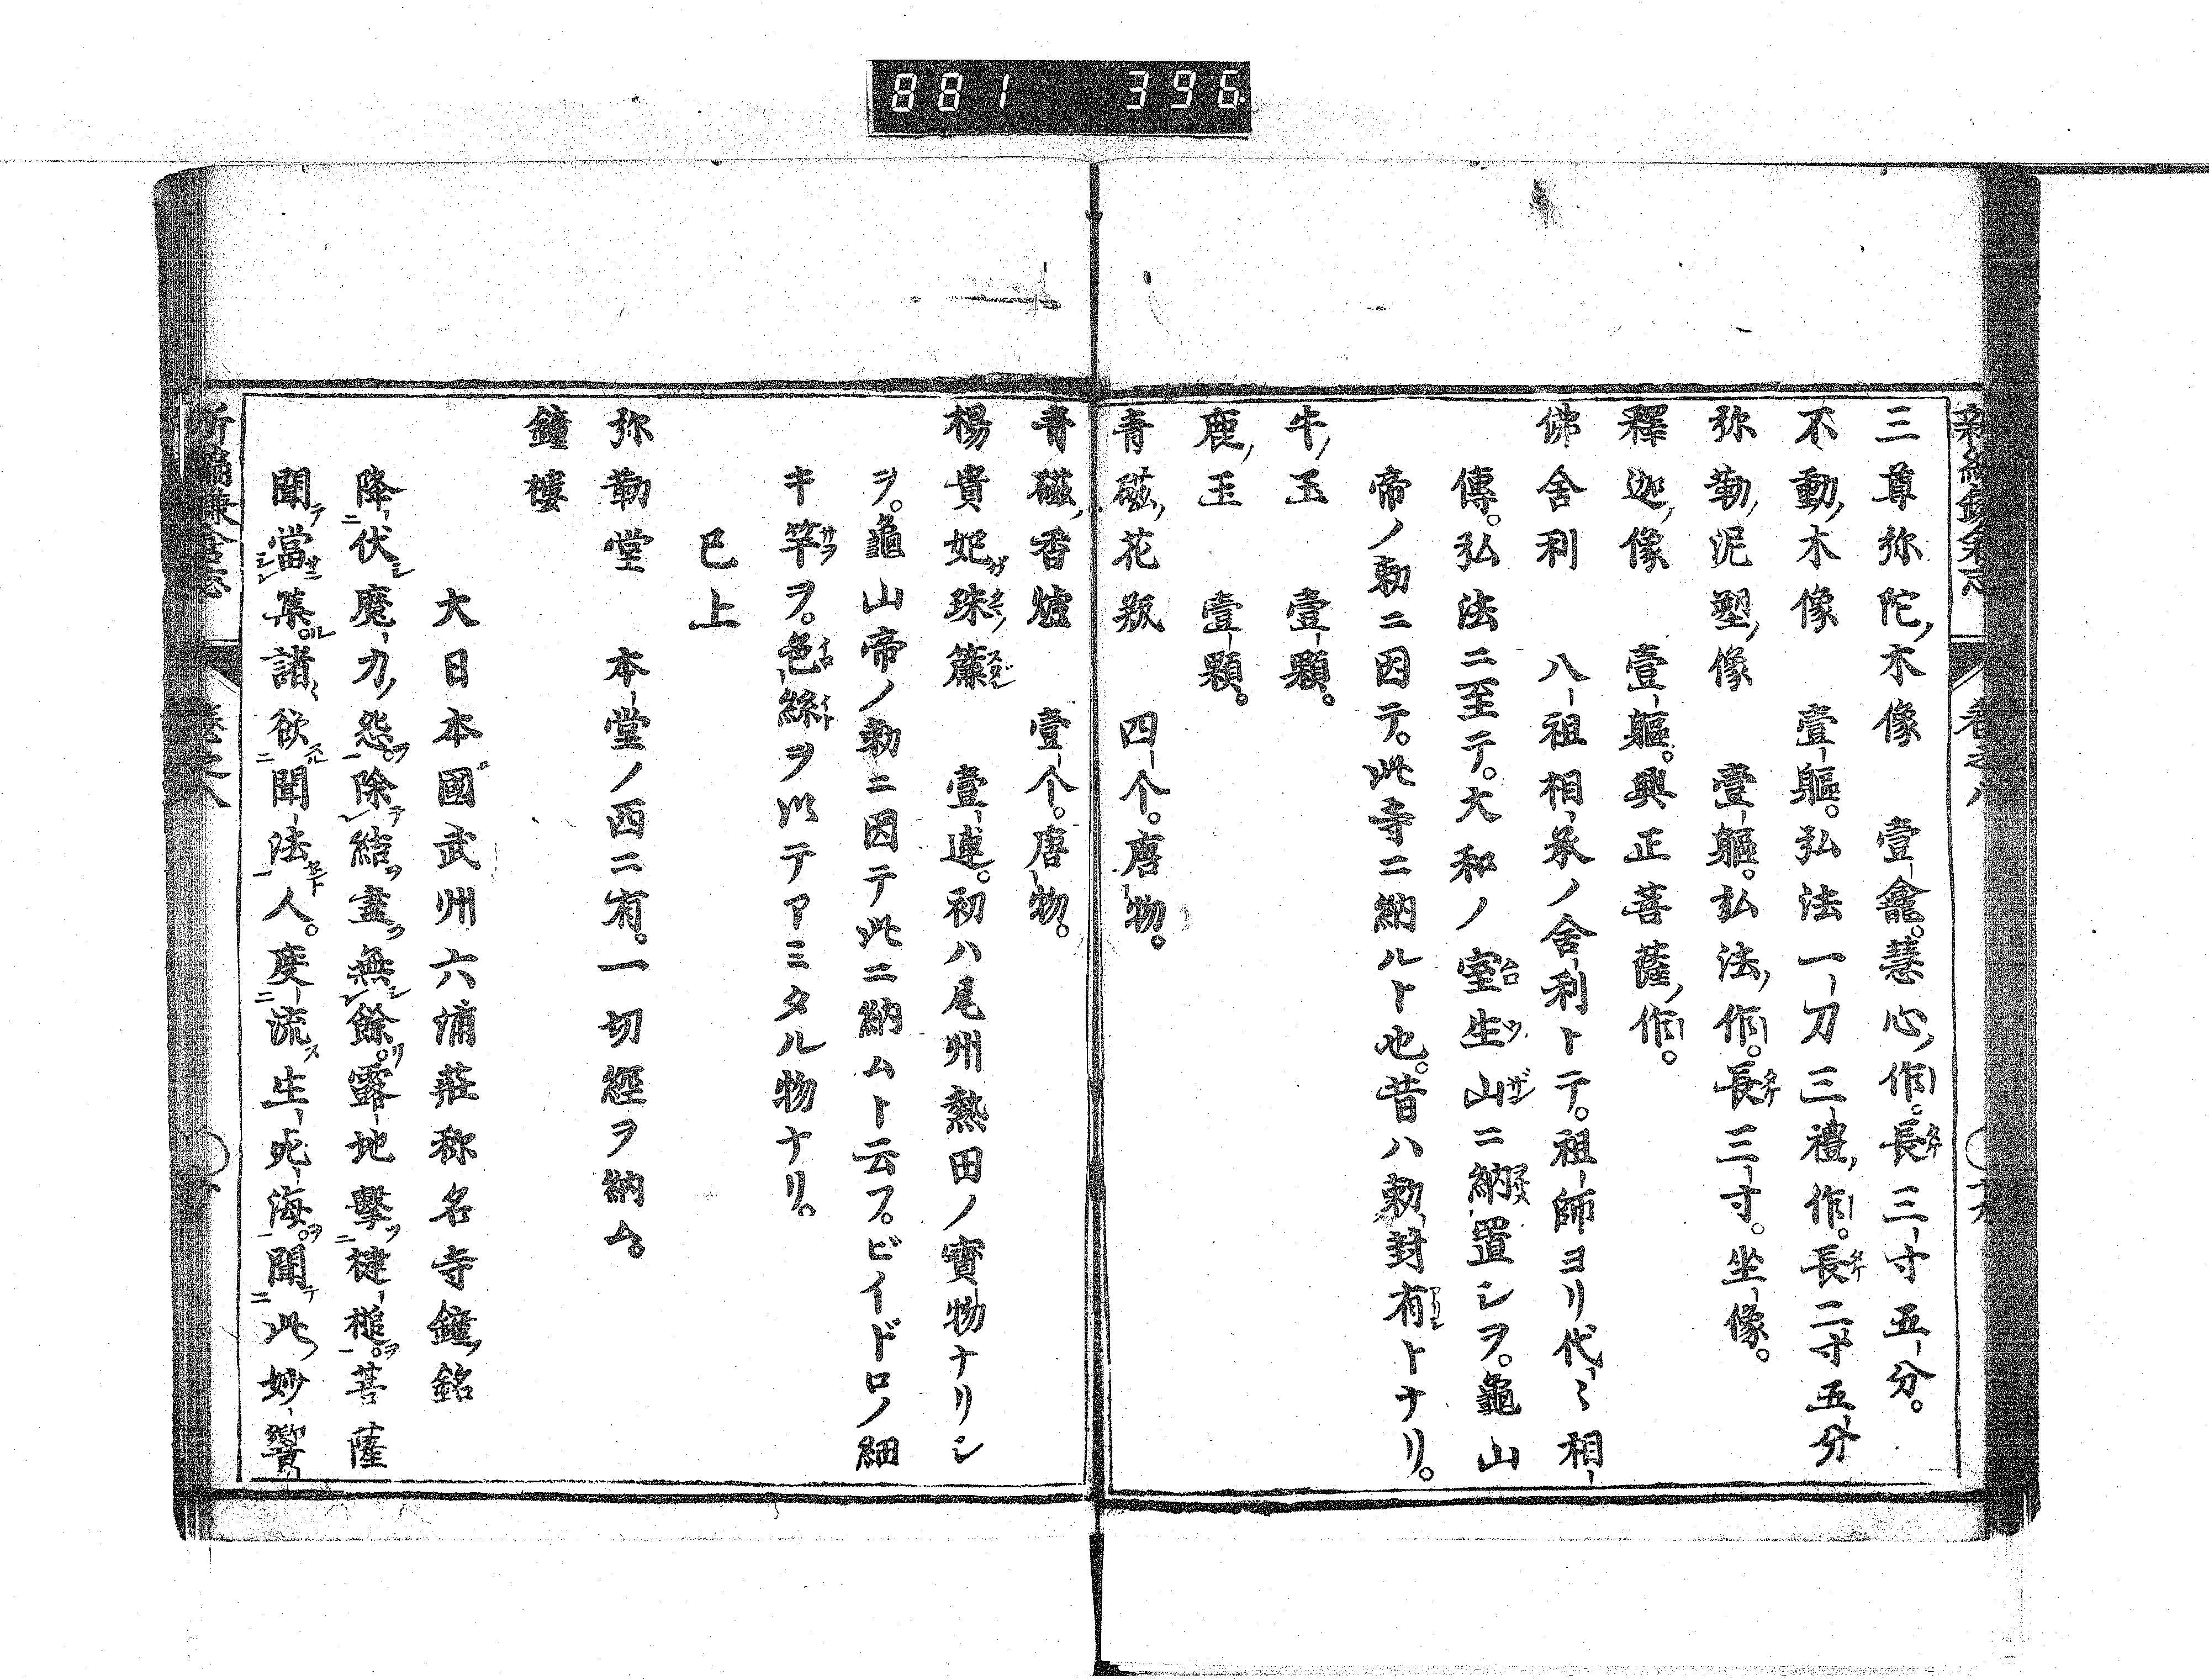 881 396
三尊弥陀木像 壹龕。慧心作。長三寸五分。
不動木像 壹軀。弘法一刀三禮作。長二寸五分
弥勒泥塑像 壹軀。弘法作。長三寸。坐像。
釋迦像 壹軀。興正菩薩作。
佛舎利 八祖相承ノ舎利トテ。祖師ヨリ代々相
傳。弘法ニ至テ。大和ノ室生山ニ納置シヲ。龜山
帝ノ勅ニ因テ。此寺ニ納ルト也。昔ハ勅封有トナリ。
牛玉 壹顆。
鹿玉 壹顆。
青磁花瓶 四个。唐物。
青磁香爐 壹个。唐物。
楊貴妃珠簾 壹連。初ハ尾州熱田ノ寳物ナリシ
ヲ。龜山帝ノ勅ニ因テ此ニ納ムト云フ。ビイドロノ細
キ竿ヲ。色絲ヲ以テアミタル物ナリ。
已上
弥勒堂 本堂ノ西ニ有。一切經ヲ納ム。
鐘樓
大日本國武州六浦莊称名寺鐘銘
降伏魔力怨。除結盡無餘。露地擊楗槌。菩薩
聞當集。諸欲聞法人。度流生死海。聞此妙響